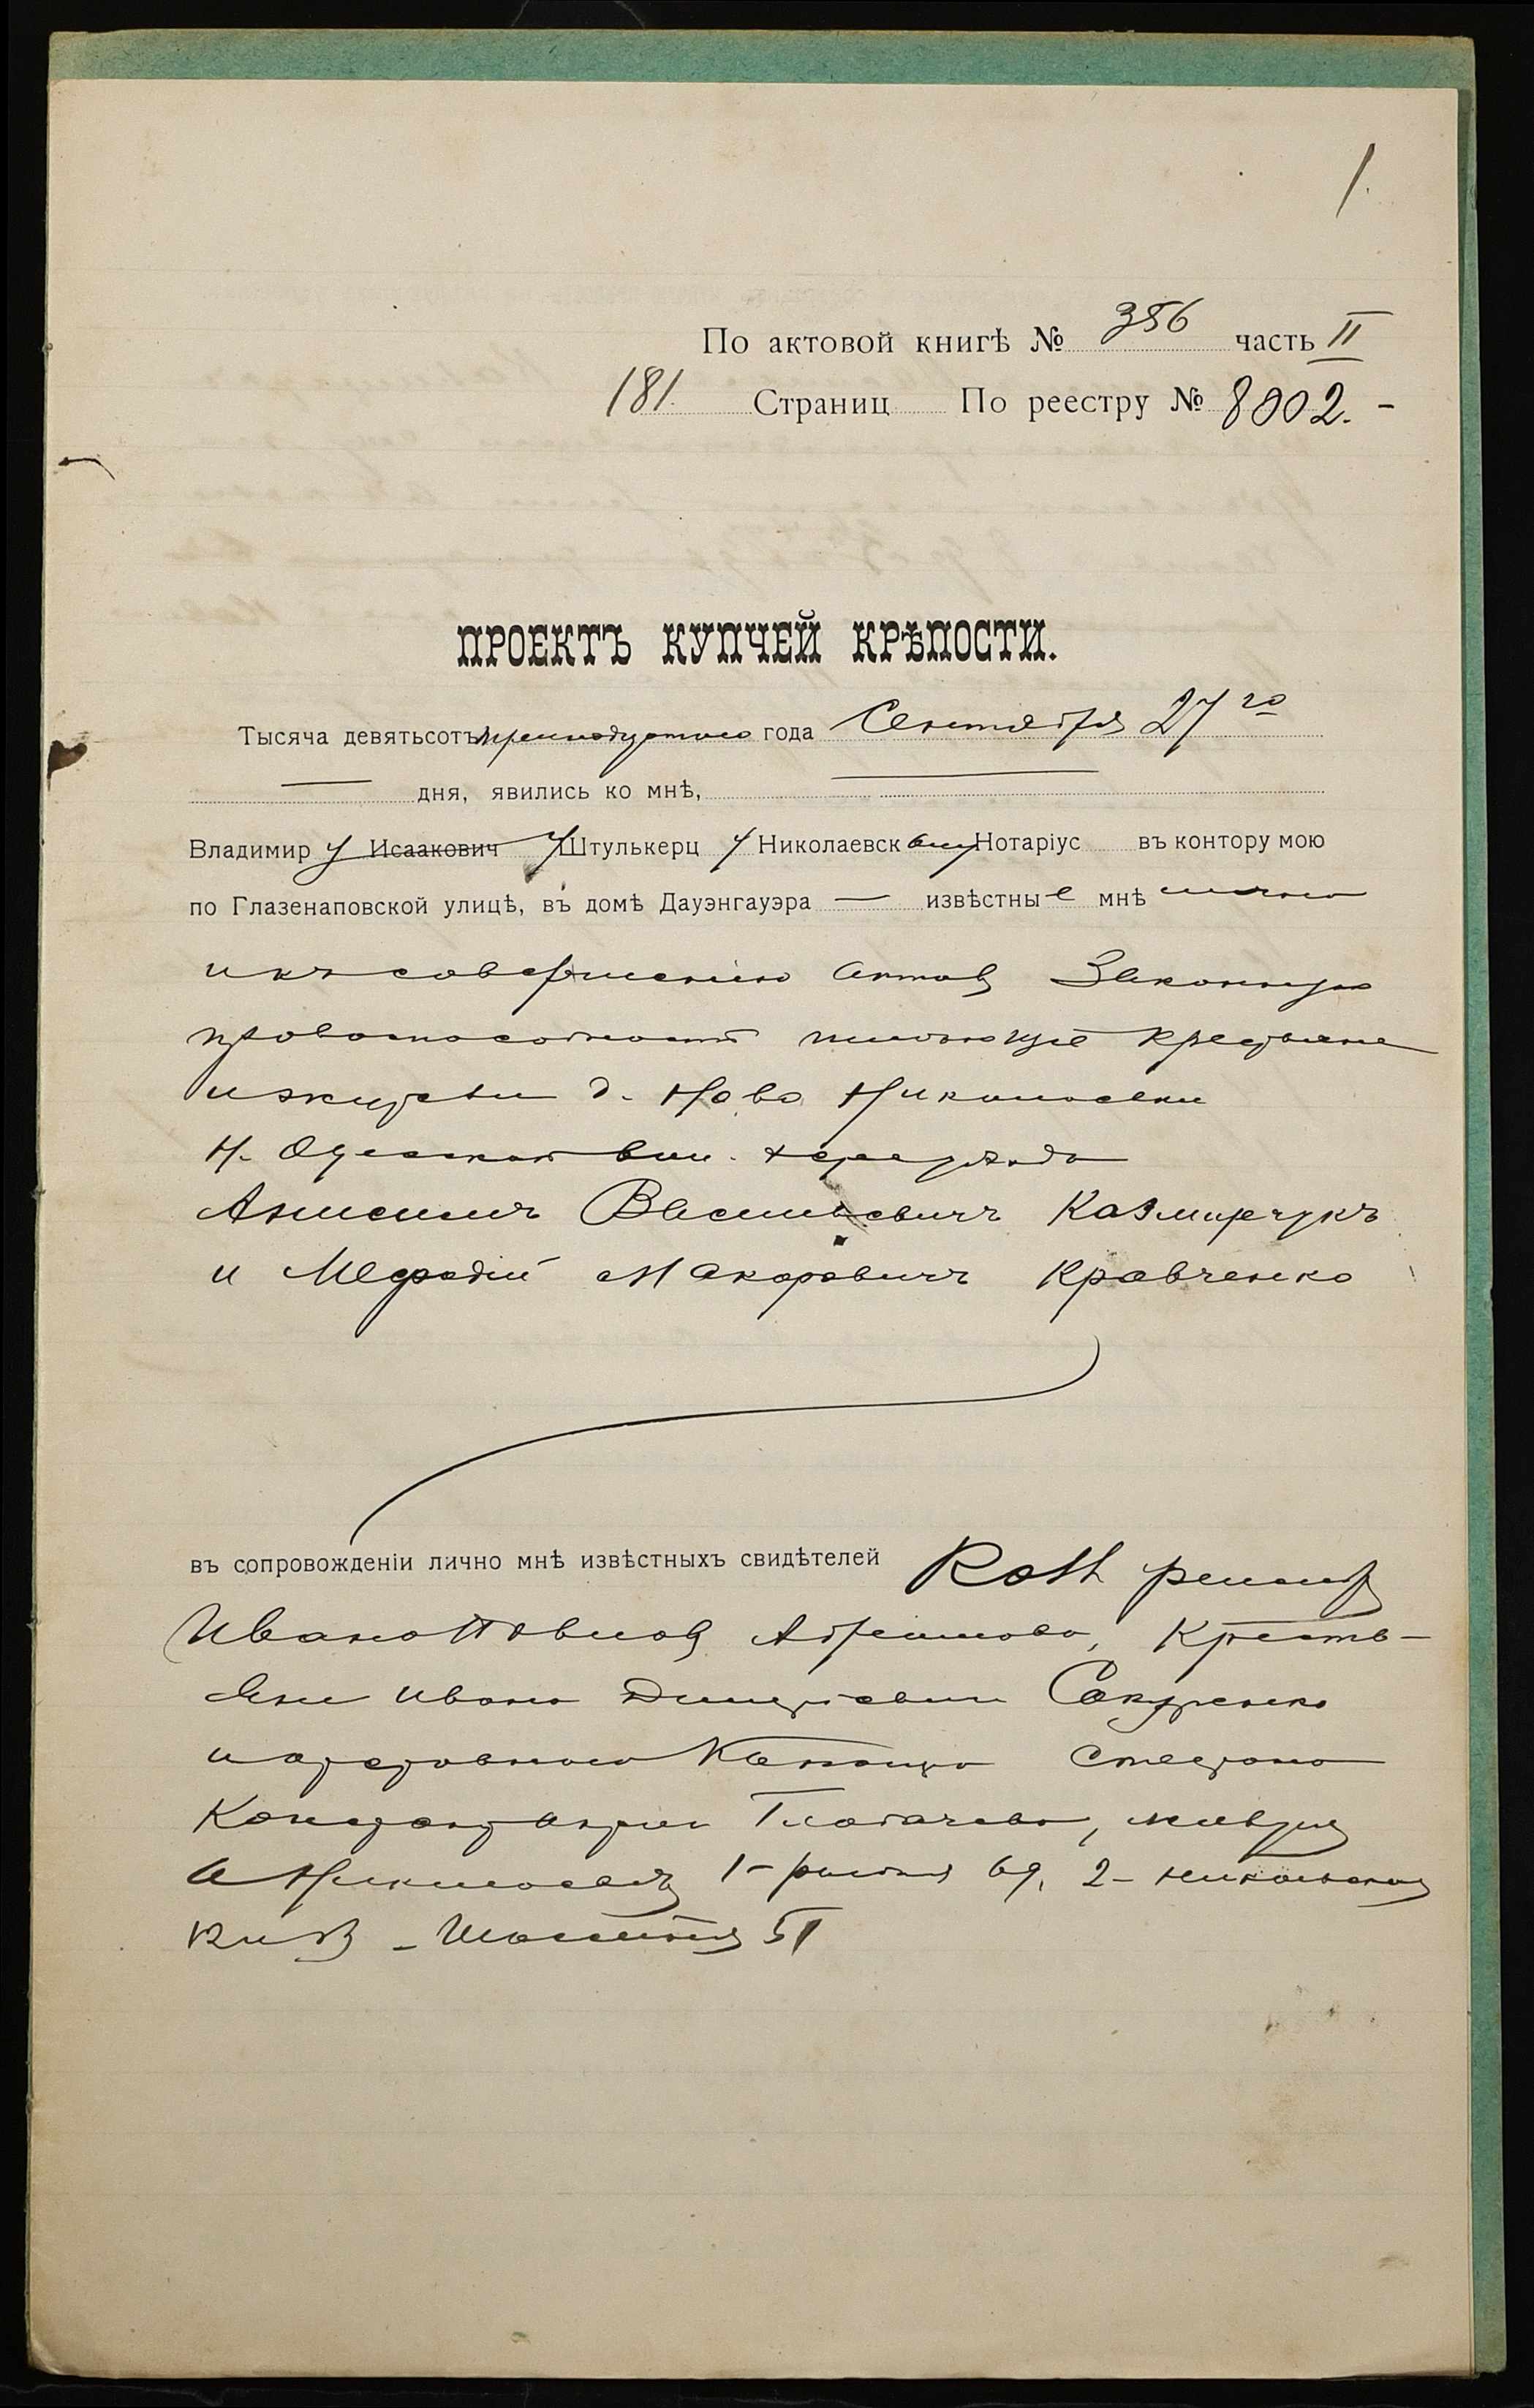 1.
По актовой книгѣ № 356 часть II
181. Страниц По реестру № 8002. -
ПРОЕКТЪ КУПЧЕЙ КРѢПОСТИ.
Тысяча девятьсотъ тринадцатаго года Сентября 27 го
дня, явились ко мнѣ,
Владимир у Исаакович у Штулькерц у Николаевск Нотаріус въ контору мою
по Глазенаповской улицѣ, въ домѣ Дауэнгауэра — извѣстны е мнѣ лично
и къ совершенію актовъ законную
правоспособность имѣющіе крестьяне
и жители д. Ново Николаевки
Н. Одесской вол. Херс. уѣзда
Анисимъ Васильевичъ Казмирчукъ
и Мефодій Макаровичъ Кравченко
въ сопровожденіи лично мнѣ извѣстныхъ свидѣтелей
Ивана Абрамова, Кресть-
яни Ивана Дмитріевич Сакуренко
и Степана
Глобачева,
Николаевѣ 1- 69, 2-
51